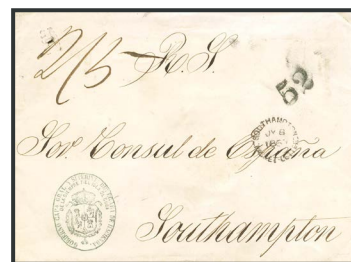 2/5 R. S.
52
SOUTHAMPTON
JY 8
Sor. Consul de España
Southampton